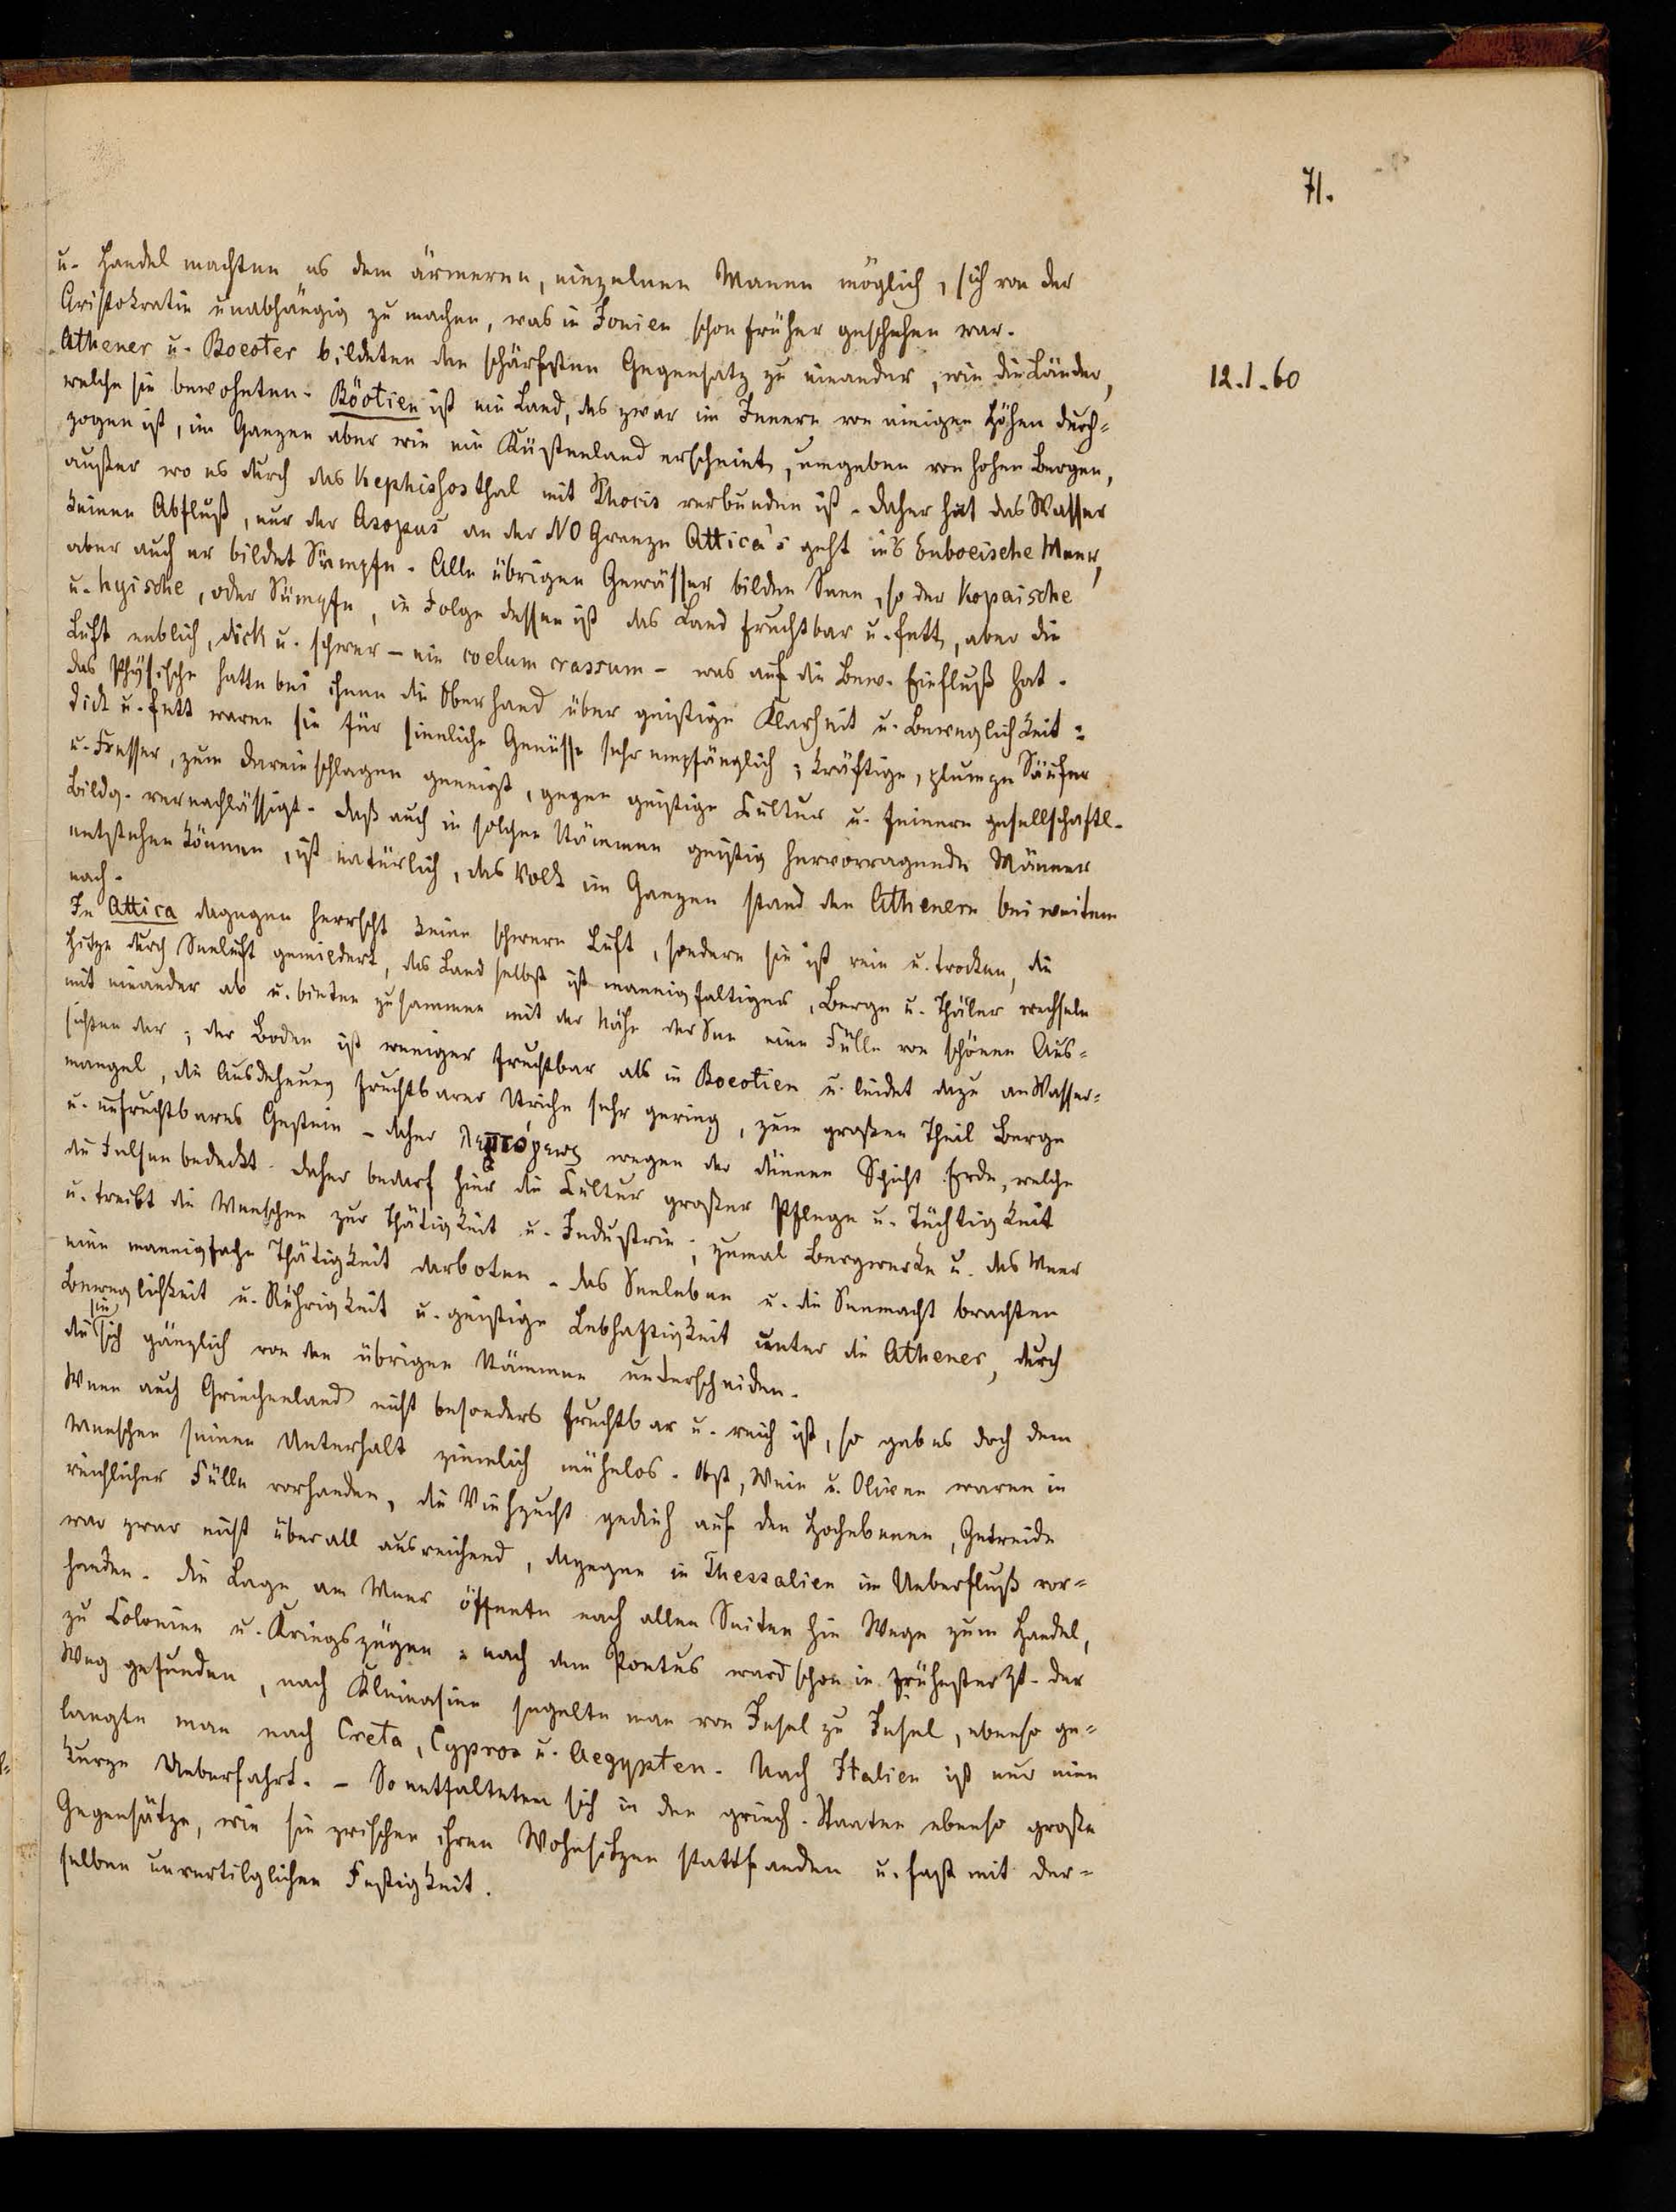 71.
u. Handel machten es dem ärmeren, einzelnen Manne möglich, sich von der
Aristokratie unabhängig zu machen, was in Ionien schon früher geschehen war.
12.1.60
Athener u. Boeoter bildeten den schärfsten Gegensatz zu einander, wie die Länder,
welche sie bewohnten. Böotien ist ein Land, das zwar im Innern von einigen Höhen durch=
zogen ist, im Ganzen aber wie ein Küstenland erscheint, umgeben von hohen Bergen,
außer wo es durch das Kephishosthal mit Phocis verbunden ist. Daher hat das Wasser
keinen Abfluß, nur der Asopus an der NO Grenze Attica's geht in's Euboeische Meer,
aber auch er bildet Sümpfe. Alle übrigen Gewässer bilden Seen, so der Kopaische
u. hyische, oder Sümpfe, in Folge dessen ist das Land fruchtbar u. fett, aber die
Luft neblich, dick u. schwer – ein coelum crassum – was auf die Bew. Einfluß hat.
Das Physische hatte bei ihnen die Oberhand über geistige Klarheit u. Beweglichkeit:
dick u. fett waren sie für sinnliche Genüsse sehr empfänglich; kräftige, plumpe Säufer
u. Fresser, zum Dareinschlagen geneigt, gegen geistige Cultur u. feinere gesellschaftl.
Bildg. vernachlässigt. Daß auch in solchen Stämmen geistig hervorragende Männer
entstehen können, ist natürlich, das Volk im Ganzen stand den Athenern bei weitem
nach.
In Attica dagegen herrscht keine schwere Luft, sondern sie ist rein u. trocken, die
Hitze durch Seeluft gemildert, das Land selbst ist mannigfaltiger, Berge u. Thäler wechseln
mit einander ab u. bieten zusammen mit der Nähe der See eine Fülle von schönen Aus=
sichten dar; der Boden ist weniger fruchtbar als in Boeotien u. leidet dazu an Wasser=
mangel, die Ausdehnung fruchtbarer Striche sehr gering, zum großen Theil Berge
u. unfruchtbares Gestein – daher λεπτόγεως wegen der dünnen Schicht Erde, welche
die Felsen bedeckt. Daher bedarf hier die Cultur großer Pflege u. Tüchtigkeit
u. treibt die Menschen zur Thätigkeit u. Industrie; zumal Bergwerke u. das Meer
eine mannigfache Thätigkeit darboten. Das Seeleben u. die Seemacht brachten
Beweglichkeit u. Rührigkeit u. geistige Lebhaftigkeit unter die Athener, durch
die sie sich gänzlich von den übrigen Stämmen unterscheiden.
Wenn auch Griechenland nicht besonders fruchtbar u. reich ist, so gab es doch dem
Menschen seinen Unterhalt ziemlich mühelos. Obst, Wein u. Oliven waren in
reichlicher Fülle vorhanden, die Viehzucht gedieh auf den Hochebenen, Getreide
war zwar nicht überall ausreichend, dagegen in Thessalien im Ueberfluß vor=
handen. Die Lage am Meer öffnete nach allen Seiten hin Wege zum Handel,
zu Colonien u. Kriegszügen: nach dem Pontus ward schon in frühester Zt. der
Weg gefunden, nach Kleinasien segelte man von Insel zu Insel, ebenso ge=
langte man nach Creta, Cypros u. Aegypten. Nach Italien ist nur eine
kurze Ueberfahrt. – So entfalteten sich in den griech. Staaten ebenso große
Gegensätze, wie sie zwischen ihren Wohnsitzen stattfanden u. fast mit der=
selben unvertilglichen Festigkeit.